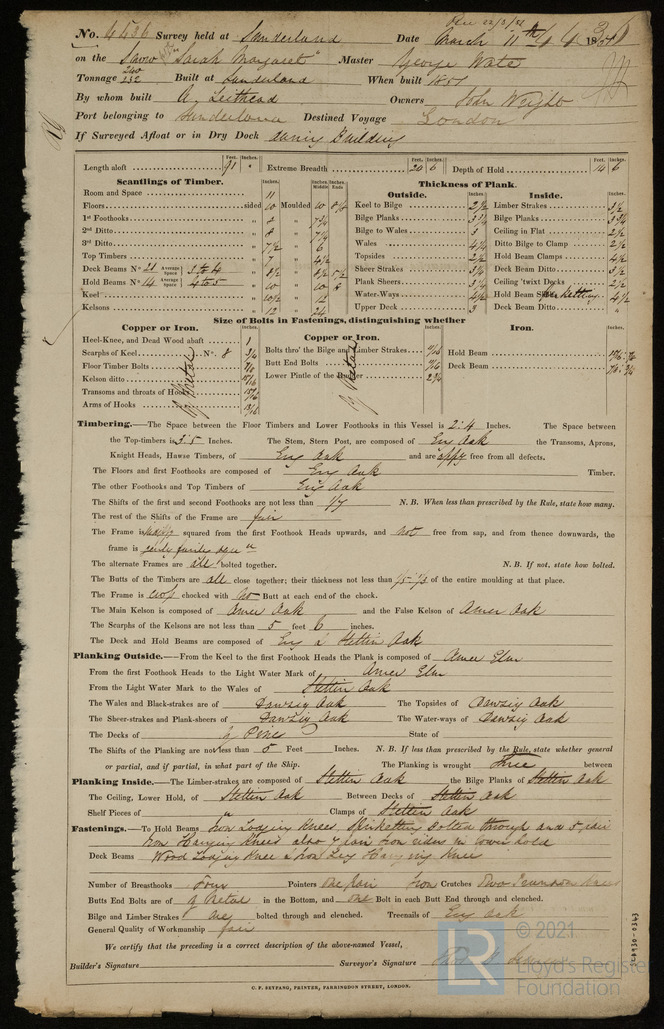 No. 4536 Survey held at Sunderland Date March 11th
on the Snow "Sarah Margaret" Master George Wate
Tonnage 240 232 Built at Sunderland When built 1851
By whom built A. Leithead Owners John Wright
Port belonging to Sunderland Destined Voyage London
If Surveyed Afloat or in Dry Dock during Building
Length aloft 91 Feet. Inches. Extreme Breadth 20 6 Feet. Inches. Depth of Hold 14 6 Feet. Inches.
Scantlings of Timber.
Room and Space 11
Floors sided 10 Moulded 10 8 1/2
1st Foothooks " 8 " 7 3/4
2nd Ditto " 8 " 7 1/4
3rd Ditto " 7 1/2 " 6
Top Timbers " 7 " 4 1/2
Deck Beams No 21 Average Space 3 to 4 " 8 1/2 " 8 1/2
Hold Beams No 14 Average Space 4 to 5 " 10 " 10 8
Keel " 10 1/2 " 12
Kelsons " 12 " 24
Thickness of Plank.
Outside.
Keel to Bilge 2 1/2
Bilge Planks 3 3/4
Bilge to Wales 3
Wales 4 1/2
Topsides 2 1/2
Sheer Strakes
Plank Sheers
Water-Ways 4 1/2
Upper Deck 3
Inside.
Limber Strakes 3 1/2
Bilge Planks 3 3/4
Ceiling in Flat 2 1/2
Ditto Bilge to Clamp 2 1/2
Hold Beam Clamps
Deck Beam Ditto
Ceiling 'twixt Decks
Hold Beam Shelf
Deck Beam Ditto "
Size of Bolts in Fastenings, distinguishing whether
Copper or Iron.
Heel-Knee, and Dead Wood abaft 1
Scarphs of Keel No. 8 3/4
Floor Timber Bolts
Kelson ditto
Transoms and throats of Hooks
Arms of Hooks
Y Metal
Copper or Iron.
Bolts thro' the Bilge and Limber Strakes
Butt End Bolts
Lower Pintle of the Rudder 2 3/4
Y Metal
Iron.
Hold Beam
Deck Beam
Timbering.—The Space between the Floor Timbers and Lower Foothooks in this Vessel is 2.4 Inches. The Space between
the Top-timbers is 3.5 Inches. The Stem, Stern Post, are composed of Eng Oak the Transoms, Aprons,
Knight Heads, Hawse Timbers, of Eng Oak and are appy free from all defects.
The Floors and first Foothooks are composed of Eng Oak Timber.
The other Foothooks and Top Timbers of Eng Oak
The Shifts of the first and second Foothooks are not less than 1/7 N. B. When less than prescribed by the Rule, state how many.
The rest of the Shifts of the Frame are fair
The Frame is squared from the first Foothook Heads upwards, and not free from sap, and from thence downwards, the
frame is
The alternate Frames are all bolted together. N. B. If not, state how bolted.
The Butts of the Timbers are all close together; their thickness not less than of the entire moulding at that place.
The Frame is chocked with Butt at each end of the chock.
The Main Kelson is composed of Amer Oak and the False Kelson of Amer Oak
The Scarphs of the Kelsons are not less than 5 feet 6 inches.
The Deck and Hold Beams are composed of Eng & Stettin Oak
Planking Outside.—From the Keel to the first Foothook Heads the Plank is composed of Amer Elm
From the first Foothook Heads to the Light Water Mark of Amer Elm
From the Light Water Mark to the Wales of Stettin Oak
The Wales and Black-strakes are of Danzig Oak The Topsides of Danzig Oak
The Sheer-strakes and Plank-sheers of Danzig Oak The Water-ways of Danzig Oak
The Decks of Y Pine State of
The Shifts of the Planking are not less than 5 Feet Inches. N. B. If less than prescribed by the Rule, state whether general
or partial, and if partial, in what part of the Ship. The Planking is wrought Three between
Planking Inside.—The Limber-strakes are composed of Stettin Oak the Bilge Planks of Stettin Oak
The Ceiling, Lower Hold, of Stettin Oak Between Decks of Stettin Oak
Shelf Pieces of " Clamps of Stettin Oak
Fastenings.—To Hold Beams Iron Lodging Knees, Spirketting bolted through and 5 pair
Iron Hanging Knees also 4 pair Iron riders in lower hold
Deck Beams Wood Lodging Knee & Iron Hanging Knee
Number of Breasthooks Four Pointers One pair Iron Crutches Two Transom Knees
Butts End Bolts are of Y Metal in the Bottom, and one Bolt in each Butt End through and clenched.
Bilge and Limber Strakes are bolted through and clenched. Treenails of Eng Oak
General Quality of Workmanship fair
We certify that the preceding is a correct description of the above-named Vessel,
Builder's Signature Surveyor's Signature
C. F. SEYFANG, PRINTER, FARRINGDON STREET, LONDON.
LR © 2021
Lloyd's Register
Foundation